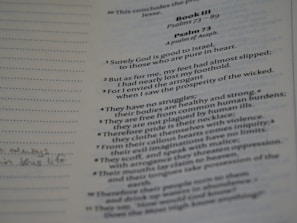 This concludes the
Jesse.
Book III
Psalms 73 – 89
Psalm 73
A psalm of Asaph.
1 Surely God is good to Israel,
to those who are pure in heart.
2 But as for me, my feet had almost slipped;
I had nearly lost my foothold.
3 For I envied the arrogant
when I saw the prosperity of the wicked.
4 They have no struggles;
their bodies are healthy and strong.
5 They are free from common human burdens;
they are not plagued by human ills.
6 Therefore pride is their necklace;
they clothe themselves with violence.
7 From their callous hearts comes iniquity;
their evil imaginations have no limits.
8 They scoff, and speak with malice;
with arrogance they threaten oppression.
9 Their mouths lay claim to heaven,
and their tongues take possession of the
earth.
10 Therefore their people turn to them
and drink up waters in abundance.
11 They say, "How would God know?
Does the Most High know anything?"
always
in this life